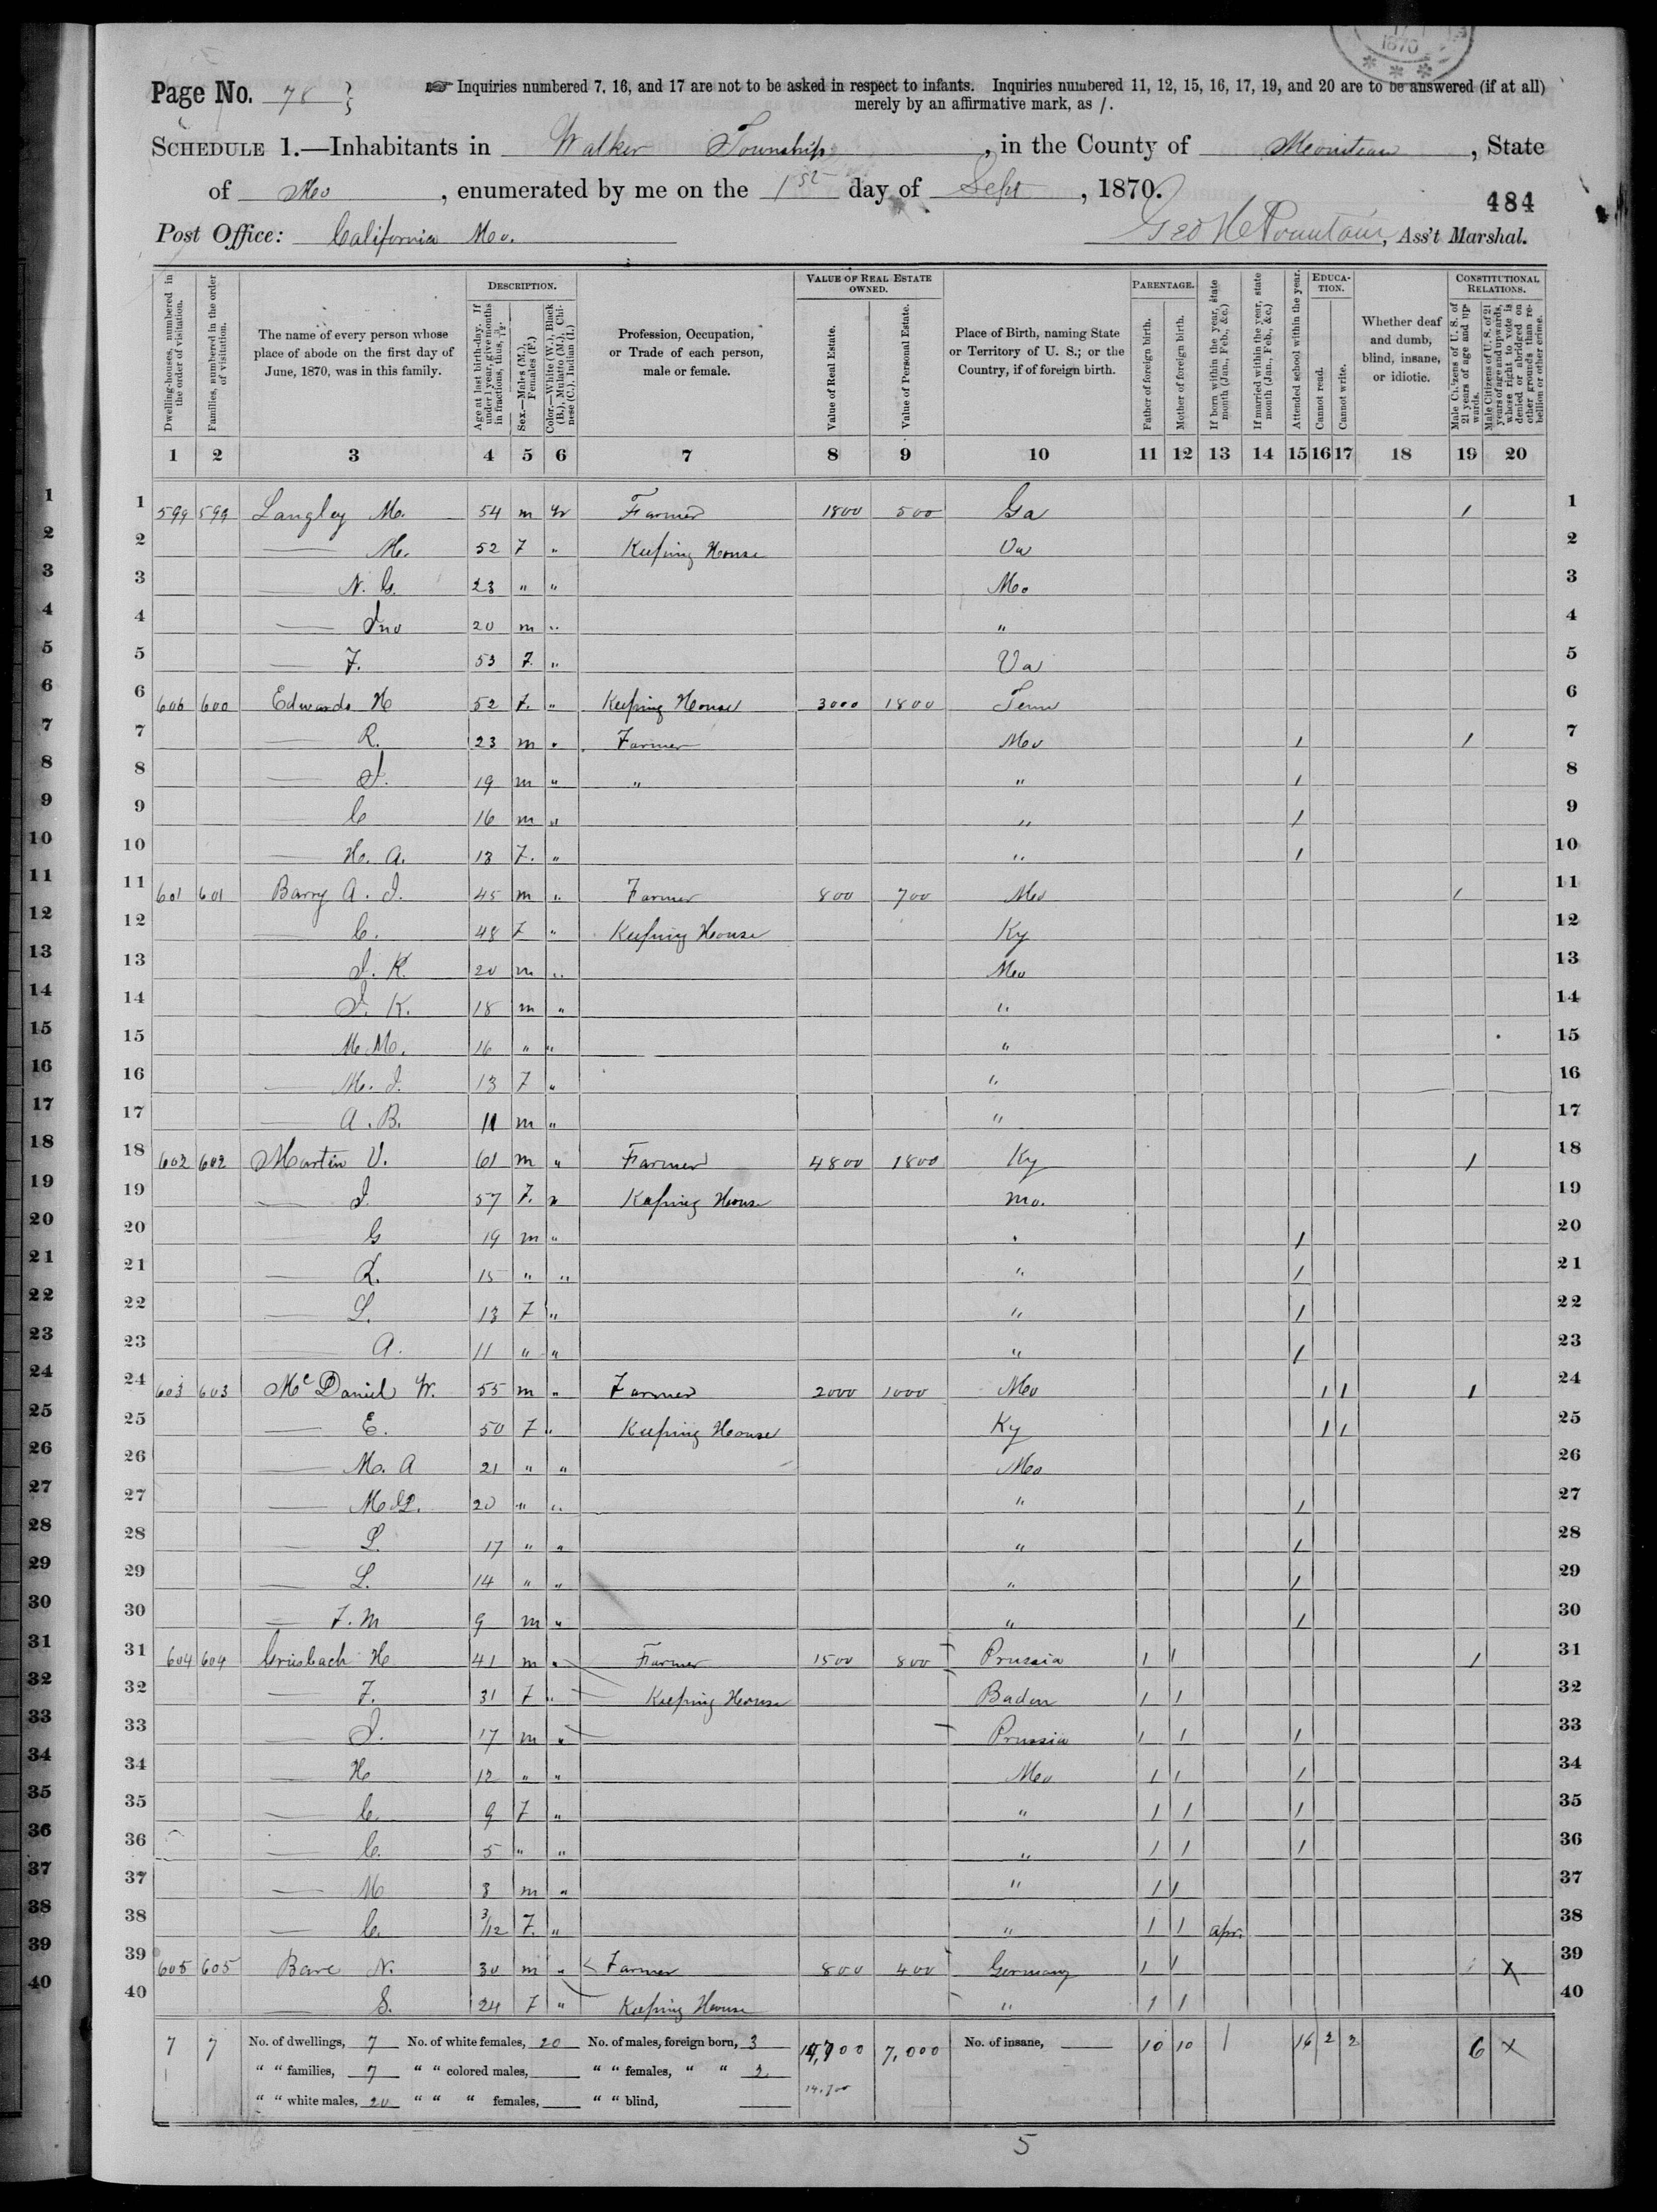 1870
Page No. 78
☞ Inquiries numbered 7, 16, and 17 are not to be asked in respect to infants. Inquiries numbered 11, 12, 15, 16, 17, 19, and 20 are to be answered (if at all)
merely by an affirmative mark, as /.
SCHEDULE 1.—Inhabitants in Walker Township, in the County of Moniteau, State
of Mo, enumerated by me on the 1st day of Sept, 1870.
484
Post Office: California Mo. Geo H Fountain, Ass't Marshal.
Dwelling-houses, numbered in the order of visitation.
Families, numbered in the order of visitation.
The name of every person whose place of abode on the first day of June, 1870, was in this family.
DESCRIPTION.
Age at last birth-day. If under 1 year, give months in fractions, thus, 3/12.
Sex.—Males (M.), Females (F.)
Color.—White (W.), Black (B.), Mulatto (M.), Chinese (C.), Indian (I.)
Profession, Occupation, or Trade of each person, male or female.
VALUE OF REAL ESTATE OWNED.
Value of Real Estate.
Value of Personal Estate.
Place of Birth, naming State or Territory of U. S.; or the Country, if of foreign birth.
PARENTAGE.
Father of foreign birth.
Mother of foreign birth.
If born within the year, state month (Jan., Feb., &c.)
If married within the year, state month (Jan., Feb., &c.)
Attended school within the year.
EDUCATION.
Cannot read.
Cannot write.
Whether deaf and dumb, blind, insane, or idiotic.
CONSTITUTIONAL RELATIONS.
Male Citizens of U. S. of 21 years of age and upwards.
Male Citizens of U. S. of 21 years of age and upwards, whose right to vote is denied or abridged on other grounds than rebellion or other crime.
1 2 3 4 5 6 7 8 9 10 11 12 13 14 15 16 17 18 19 20
1 599 599 Langley M. 54 m W Farmer 1800 500 Ga / 1
2 — M. 52 F " Keeping House Va 2
3 — N. G. 23 " " Mo 3
4 — Jno 20 m " " 4
5 — F. 53 F. " Va 5
6 600 600 Edwards H 52 F. " Keeping House 3000 1800 Tenn 6
7 — R. 23 m " Farmer Mo / / 7
8 — J. 19 m " " " / 8
9 — C 16 m " " / 9
10 — H. A. 13 F. " " / 10
11 601 601 Barry A. J. 45 m " Farmer 800 700 Mo / 11
12 — C. 48 F " Keeping House Ky 12
13 — J. K. 20 m " Mo 13
14 — J. K. 18 m " " 14
15 — M. M. 16 " " " 15
16 — M. J. 13 F " " 16
17 — A. B. 11 m " " 17
18 602 602 Martin V. 61 m " Farmer 4800 1800 Ky / 18
19 — J. 57 F. " Keeping House Mo. 19
20 — G 19 m " " / 20
21 — R. 15 " " " / 21
22 — L. 13 F " " / 22
23 — A. 11 " " " / 23
24 603 603 McDaniel W. 55 m " Farmer 2000 1000 Mo / / / 24
25 — E. 50 F " Keeping House Ky / / 25
26 — M. A 21 " " Mo 26
27 — 20 " " " / 27
28 — L. 17 " " " / 28
29 — L. 14 " " " / 29
30 — F. M 9 m " " / 30
31 604 604 Griesbach H 41 m " Farmer 1500 800 Prussia / / / 31
32 — F. 31 F " Keeping House Baden / / 32
33 — J. 17 m " Prussia / / / 33
34 — H 12 " " Mo / / / 34
35 — C 9 F " " / / / 35
36 — C. 5 " " " / / / 36
37 — M 3 m " " / / 37
38 — C. 3/12 F. " " / / apr. 38
39 605 605 Bare N. 30 m " Farmer 800 400 Germany / / X 39
40 — S. 24 F " Keeping House " / / 40
7 7 No. of dwellings, 7 No. of white females, 20 No. of males, foreign born, 3 14,700 7,000 No. of insane, 10 10 1 16 2 2 6 X
" " families, 7 " " colored males, " " females, " " 2 14.700
" " white males, 20 " " " females, " " blind,
5